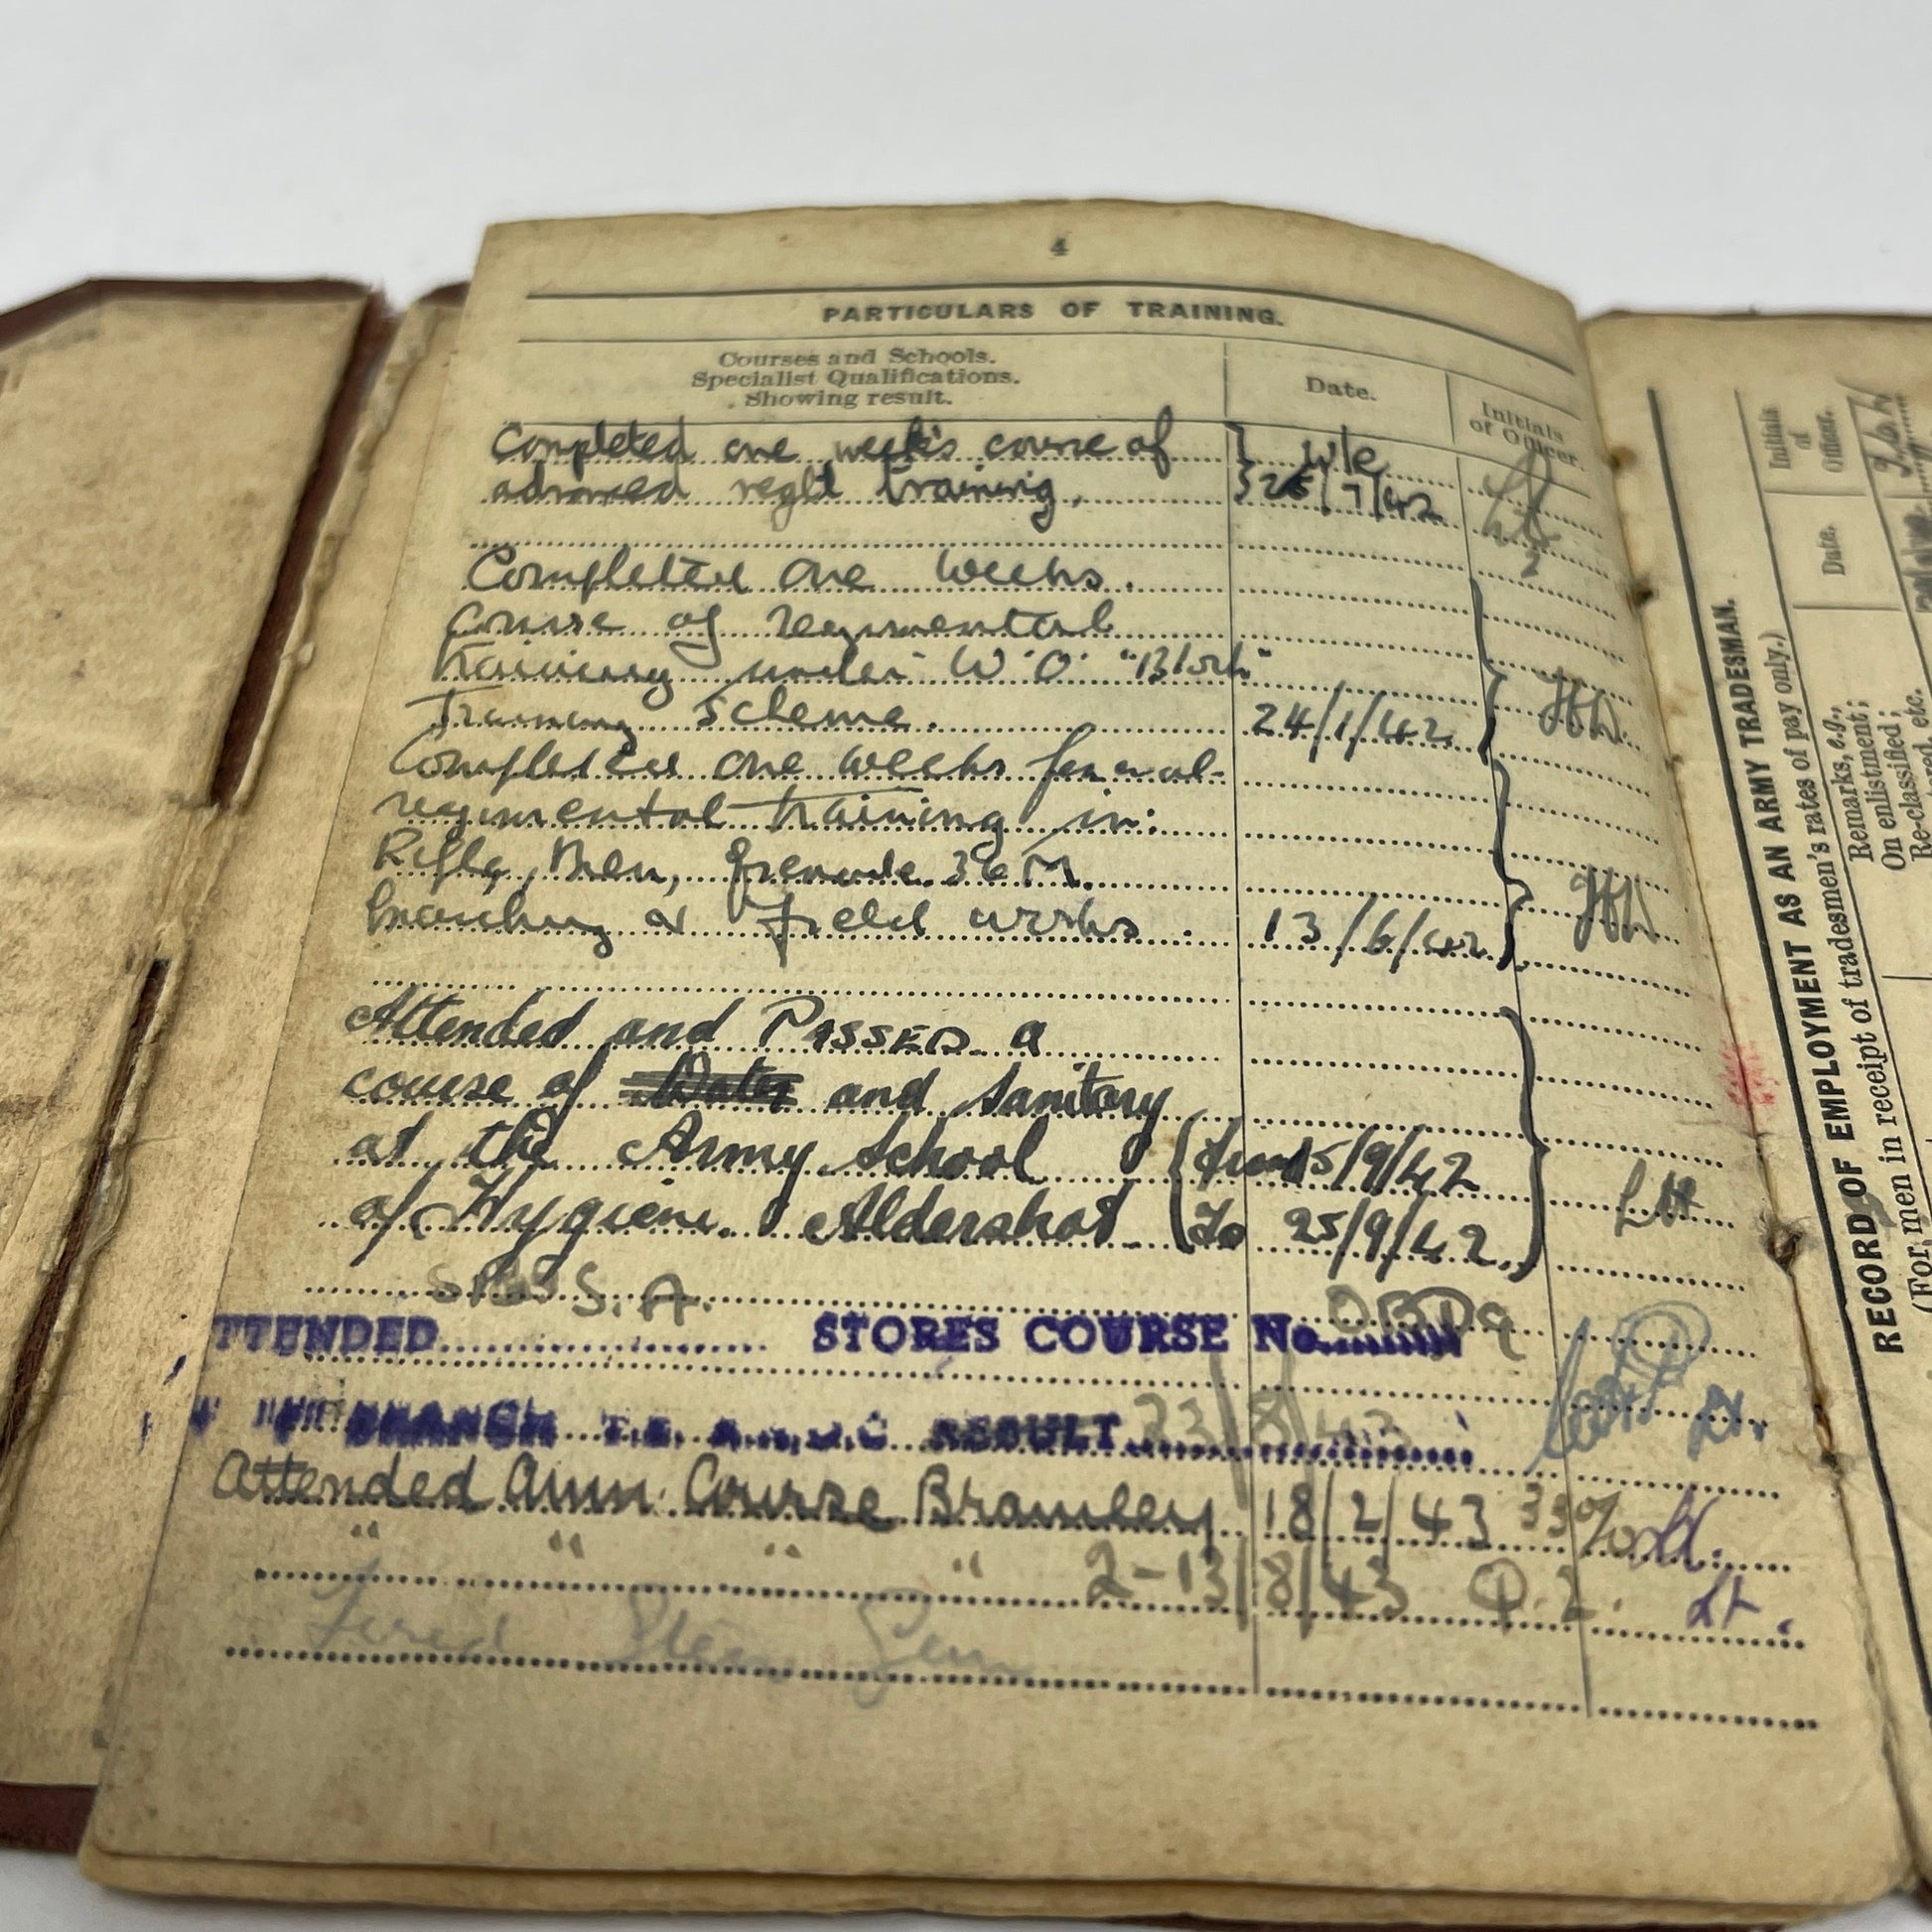 4
PARTICULARS OF TRAINING.
Courses and Schools.
Specialist Qualifications.
Showing result.
Date.
Initials
of Officer.
Completed one week's course of } w/e
advanced regtl training, } 25/7/42
Completed one weeks.
Course of regimental
training under W.O. "Block"
Training Scheme. 24/1/42
Completed one weeks general
regimental training in:
Rifle, Bren, Grenade 36 M.
marching & field works 13/6/42
Attended and PASSED a
course of Water and Sanitary
at the Army School { From 15/9/42
of Hygiene. Aldershot { To 25/9/42 LH
S.A.
TTENDED STORES COURSE No.
BRANCH T.E. RESULT 23/8/43 Lt.
Attended Amn. Course Bramley 18/2/43 33% Lt.
" " " " 2-13/8/43 Q.2. Lt.
Fired Sten Gun
RECORD OF EMPLOYMENT AS AN ARMY TRADESMAN.
(For men in receipt of tradesmen's rates of pay only.)
Remarks, e.g.,
On enlistment;
Re-classified;
etc.
Date.
Initials
of
Officer.